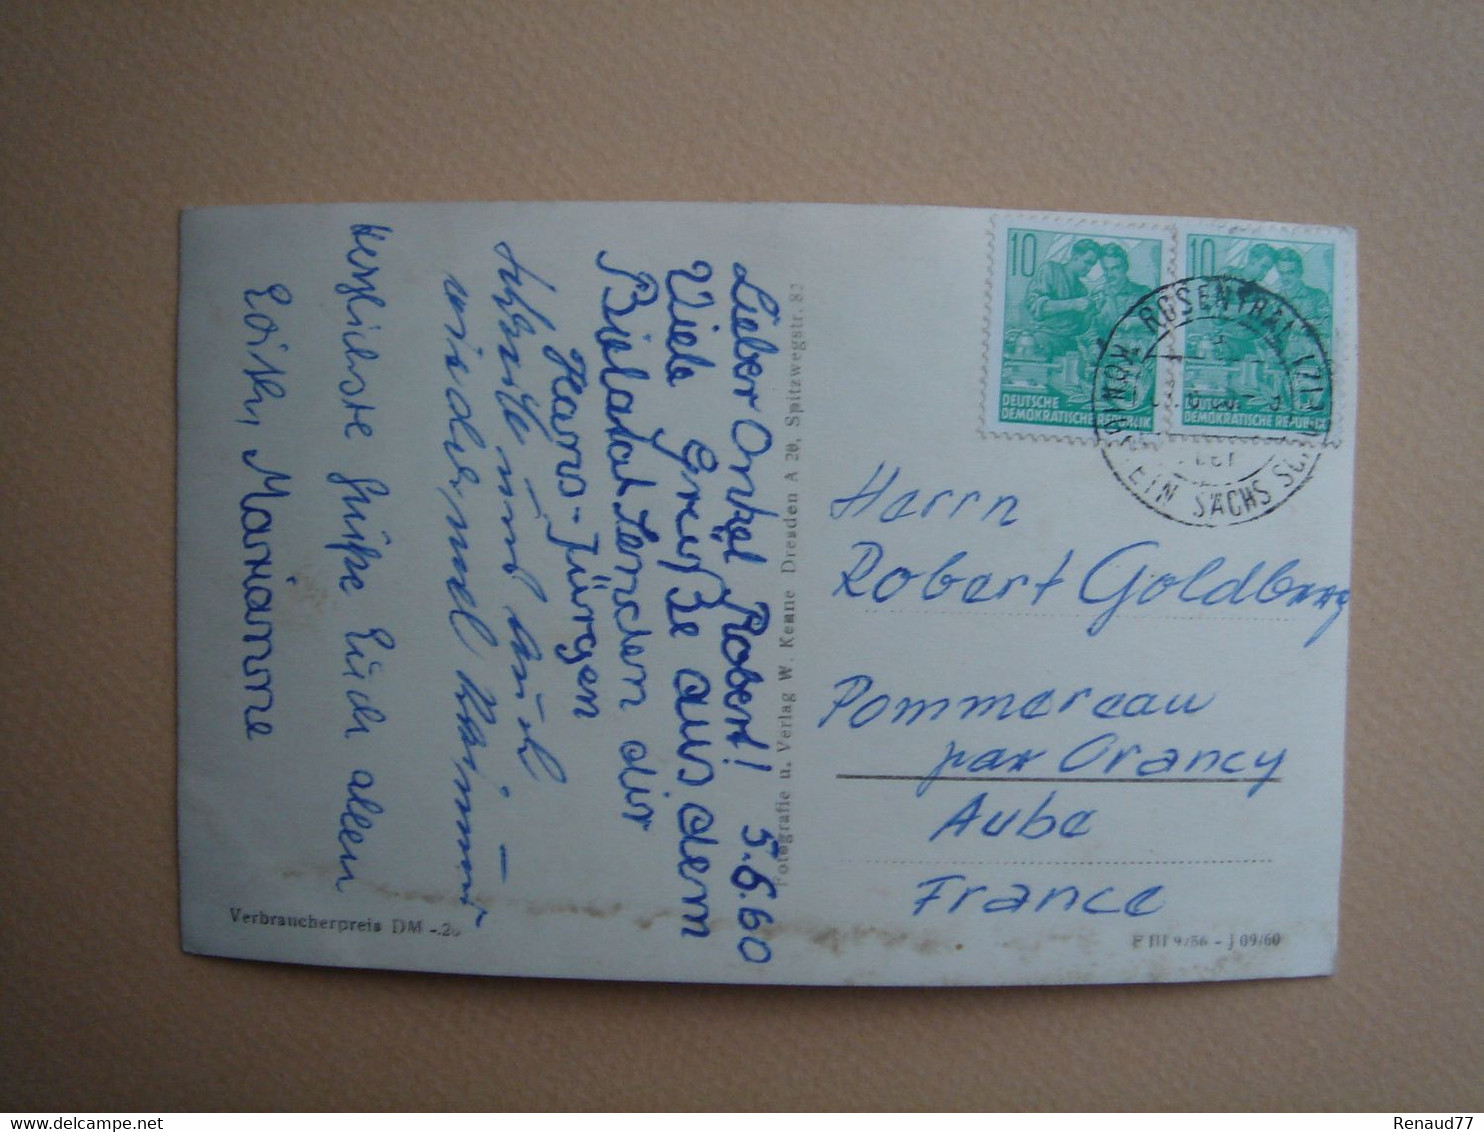 Lieber Onkel Robert! 5.6.60
Viele Grüße aus dem
Bielatal senden dir
Hans-Jürgen
und auch
wieder mal
Herzlichste Grüße Euch allen
Edith, Marianne
Verbraucherpreis DM -.20
Fotografie u. Verlag W. Kenne Dresden A 20, Spitzwegstr. 82
10
DEUTSCHE
DEMOKRATISCHE REPUBLIK
10
DEUTSCHE
DEMOKRATISCHE REPUBLIK
ROSENTHAL
KÖNIGSTEIN SÄCHS SCHWEIZ
Herrn
Robert Goldberg
Pommereau
par Orancy
Aube
France
F III 9/56 - J 09/60
Renaud77